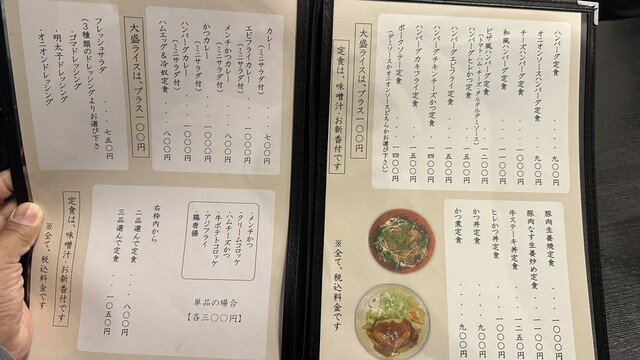 ハンバーグ定食・・・九〇〇円
オニオンソースハンバーグ定食・・九〇〇円
チーズハンバーグ定食・・・一〇〇〇円
和風ハンバーグ定食・・・一一〇〇円
ピザ風ハンバーグ定食・・・一二〇〇円
(トマト・ハム・チーズ・タルタル・デミソース)
ハンバーグヒレかつ定食・・・一五〇〇円
ハンバーグエビフライ定食・・・一五〇〇円
ハンバーグチキン・チーズかつ定食・・一四〇〇円
ハンバーグカキフライ定食・・・一五〇〇円
ポークソテー定食・・・一四〇〇円
(デミソースかオニオンソースどちらかお選び下さい)
大盛ライスは、プラス一〇〇円
定食は、味噌汁・お新香付です
豚肉生姜焼定食・・・一〇〇〇円
豚肉なす生姜炒め定食・・一一〇〇円
牛ステーキ丼定食・・・一二五〇円
ヒレかつ丼定食・・・一一〇〇円
かつ丼定食・・・九〇〇円
かつ煮定食・・・九〇〇円
※全て、税込料金です。
カレー・・・七〇〇円
(ミニサラダ付)
エビフライカレー・・・一〇〇〇円
(ミニサラダ付)
メンチかつカレー・・・八〇〇円
(ミニサラダ付)
かつカレー・・・一〇〇〇円
(ミニサラダ付)
ハンバーグカレー・・・一〇〇〇円
(ミニサラダ付)
ハムエッグ&冷奴定食・・・八〇〇円
大盛ライスは、プラス一〇〇円
フレッシュサラダ・・・七五〇円
(3種類のドレッシングよりお選び下さい)
・ゴマドレッシング
・明太子ドレッシング
・オニオンドレッシング
・メンチかつ
・クリームコロッケ
・ハムチーズかつ
・牛ポテトコロッケ
・アジフライ
・鶏唐揚
単品の場合
【各三〇〇円】
右枠内から
二品選んで定食・・・八〇〇円
三品選んで定食・・・一〇五〇円
定食は、味噌汁・お新香付です
※全て、税込料金です。